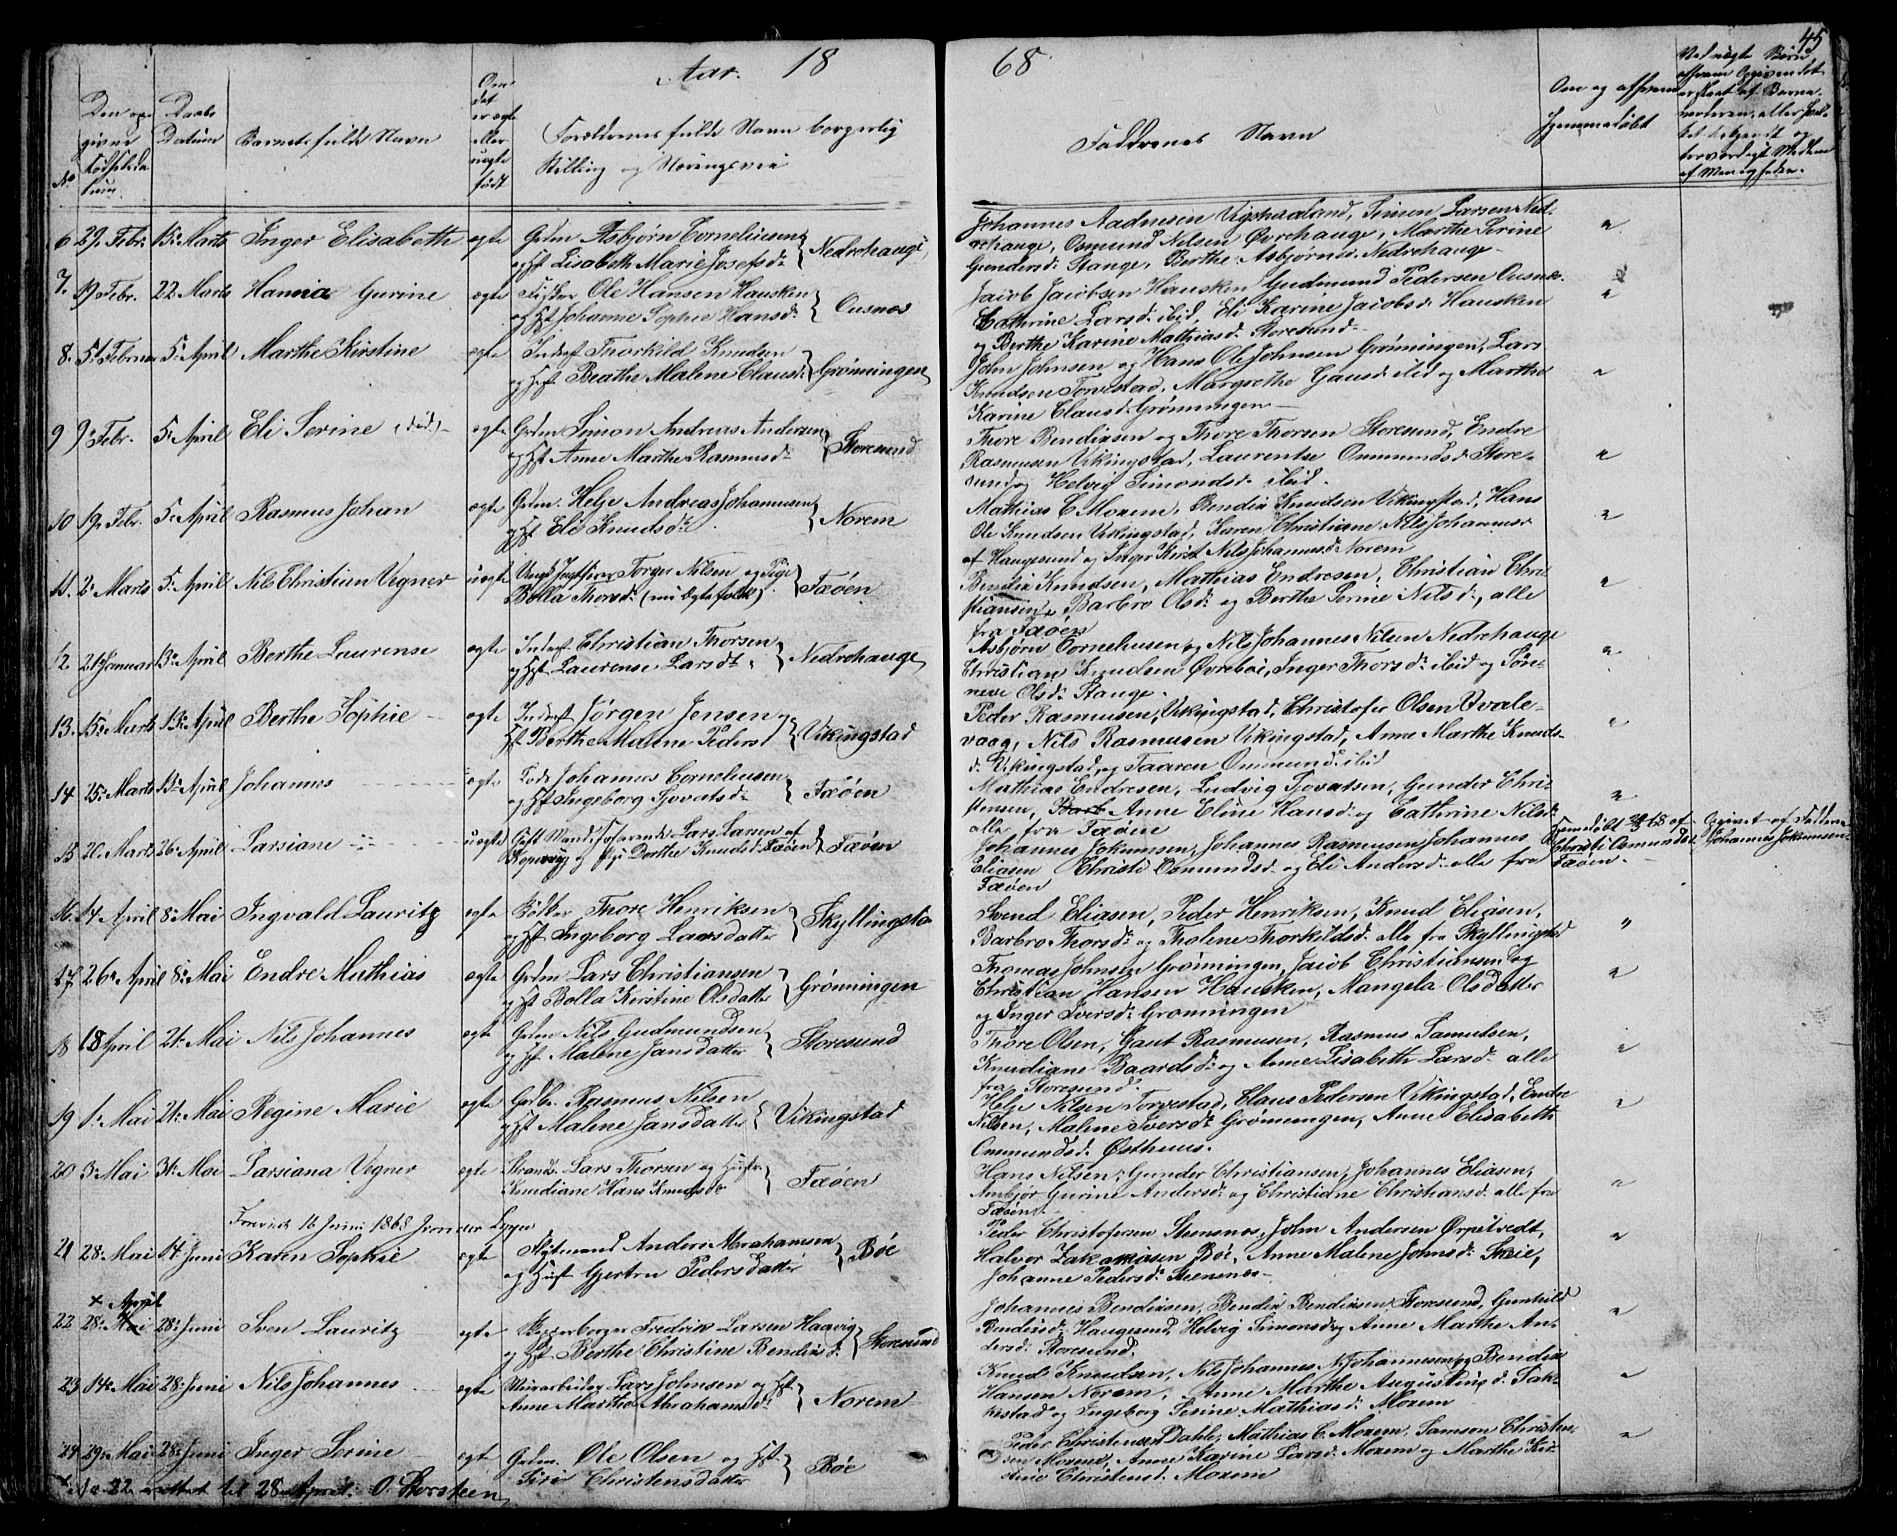 45
Aar. 18 68
No
Den op-
givne
Fødselsda-
tum
Daabs
Datum
Barnets fulde Navn
Om
det
er ægte
eller
uægte
født
Forældrenes fulde Navn borgerlig
Stilling og Næringsvei
Faddrenes Navn
Om og af hvem
hjemmedøbt
Ved uægte Børn
af hvem Opgivendet
er skeet af Barne-
moderen, eller
bekjendt og
troværdigt Medlem
af Menigheden.
6 29 Febr. 15 Marts Inger Elisabeth ægte Grdm Asbjørn Corneliusen
og Hst Lisabeth Marie Josefsd. Nedrehauge
Johannes Aadnesen Vigshaaland, Simon Larsen Ned-
rehauge, Osmund Nilsen Øvrehauge, Marthe Sirine
Gundersd. Stange, Berthe Asbjørnsd. Nedrehauge
7. 19 Febr. 22 Marts Hanna Gurine ægte Fisker Ole Hansen Hausken
og Hst Johanne Sophie Hansd. Ousnes
Jacob Jacobsen Hausken Gudmund Pedersen Ousnes
Cathrine Larsd. ibid, Eli Karine Jacobsd. Hausken
og Berthe Karine Mathiasd. Storesund
8. 5 Februar 5 April Marthe Kirstine ægte Inderst Thorkild Knudsen
og Hst Beathe Malene Clausd. Grønningen
John Johnsen og Hans Ole Johnsen Grønningen, Lars
Knudsen Torvestad, Margrethe Gausd. ibid og Marthe
Karine Clausd. Grønningen
9 9 Febr. 5 April Eli Serine (død) ægte Grdm Simon Andreas Andersen
og Hst Anne Marthe Rasmusd. Storesund
Thore Bendixsen og Thore Thorsen Storesund, Endre
Rasmusen Vikingstad, Laurentse Ommundsd. Store-
sund og Helvig Simondsd. ibid.
10 19 Febr. 5 April Rasmus Johan ægte Grdm. Helje Andreas Johannesen
og Hst Eli Knudsd. Norem
Mathias C Moxem, Bendix Knudsen Vikingstad, Hans
Ole Knudsen Vikingstad, Karen Christiane Nils Johannesd
af Haugesund og Inger Kirst. Nils Johannesd. Norem
11. 2 Marts 5 April Nils Christian Vegner uægte Ungk. Torger Nilsen og Pige
Bolla Thorsd. (nu Ægtefolk) Faøen
Bendix Knudsen, Mathias Endresen, Christian Chri-
stiansen, Barbro Olsd. og Berthe Serine Nilsd., alle
fra Faøen
12 21 Januar 13 April Berthe Laurense ægte Inderst Christian Thorsen
og Hst Laurense Larsdt. Nedrehauge
Asbjørn Corneliusen og Nils Johannes Nilsen Nedrehauge
Christian Knudsen Øvrebøe, Inger Thorsd. ibid og Søn-
neve Olsd. Stange.
13. 15 Marts 13 April Berthe Sophie ægte Inderst Jørgen Jensen og
Hst Berthe Malene Pedersd Vikingstad
Peder Rasmusen, Vikingstad, Christofer Olsen Qvale-
vaag, Nils Rasmusen Vikingstad, Anne Marthe Knuds-
d. Vikingstad og Taaren Ommundsd. ibid
14 25 Marts 13 April Johannes ægte Lods Johannes Corneliusen
og Hst Ingeborg Sjovatsd. Faøen
Mathias Endresen, Ludvig Sjovatsen, Gunder Chri-
stensen, Barb Anne Eline Hansd. og Cathrine Nilsd.
alle fra Faøen
15 20 Marts 26 April Larsiane uægte Gift Mand Søfarende Lars Larsen af
Kopervig og Pige Dorthe Knudsd. Faøen Faøen
Johannes Jokumsen, Johannes Rasmusen Johannes
Eliasen Christi Osmundsd. og Eli Andersd. alle fra
Faøen
Hjemdøbt 68 af
Christi Osmundsd.
Faøen.
Opgivet af Fadderen
Johannes Jokumsen
16. 14 April 8 Mai Ingvald Lauritz ægte Bødker Thore Henriksen
og Hst Ingeborg Larsdatter Skyllingstad
Svend Eliasen, Peder Henriksen, Knud Eliasen,
Barbro Thorsd. og Tholene Thorkildsd. alle fra Skyllingstad
17 26 April 8 Mai Endre Mathias ægte Grdm Lars Christiansen
og Hst Bolla Kirstine Olsdatter Grønningen
Thomas Johnsen Grønningen, Jacob Christiansen og
Christian Hansen Hausken, Mangela Olsdatter
og Inger Iversd. Grønningen
18 18 April 21 Mai Nils Johannes ægte Grdm Nils Gudmundsen
og Hst Malene Jansdatter Storesund
Thore Olsen, Gaut Rasmusen, Rasmus Samuelsen,
Knudiane Baardsd. og Anne Lisabeth Larsd. alle
fra Storesund.
19 1 Mai 21 Mai Regine Marie ægte Grdbr. Rasmus Nilsen
og Hst Malene Jansdatter Vikingstad
Helje Nilsen Torvestad, Claus Pedersen Vikingstad, Endre
Nilsen, Malene Iversd. Grønningen, Anne Elisabeth
Ommundsd. Østhuus.
20 3 Mai 31 Mai Larsiana Vegner ægte Strands. Lars Thorsen og Hustru
Knudiane Hans Knudsdr Faøen
Hans Nilsen, Gunder Christiansen, Johannes Eliasen,
Ambjør Gurine Andersd. og Christidne Christiansd. alle fra
Faøen
Forevist 16 Juni 1868
21 28 Mai 14 Juni Karen Sophie ægte Skytsmand Anders Abrahamsen
og Hust Gjertru Pedersdatter Bøe
Peder Christofersen Stensnes, John Andersen Ørpetvedt,
Halvor Zakariasen Bøe, Anne Malene Johnsd. Skeie,
Johanne Pedersd. Steensnes
× April
22 28 Mai 28 Juni Sven Lauritz ægte Skipperborger Fredrik Larsen Haavig
og Hst Berthe Christine Bendixsd. Storesund
Johannes Bendixsen, Bendix Bendixsen Storesund, Gunhild
Bendixsd. Haugesund, Helvig Simonsd. og Anne Marthe An-
dersd. Storesund.
23 14 Mai 28 Juni Nils Johannes ægte Murarbeider Lars Johnsen og Hst
Anne Martha Abrahamsd. Norem
Knud Knudsen, Nils Johannes N. Johannesen og Bendix
Hansen Norem, Anne Marthe Augustinusd. Sak-
kestad og Ingeborg Serine Mathiasd. Moxem
24 29 Mai 28 Juni Inger Serine ægte Grdm. Ole Olsen og Hst
Siri Christensdatter Bøe
Peder Christensen Dahle, Mathias C. Moxem, Samson Christen-
sen Moxem, Anne Karine Larsd. Moxem og Marthe Kir-
stine Christensd. Moxem
× No 22 rettet til 28 April. O. Storsteen